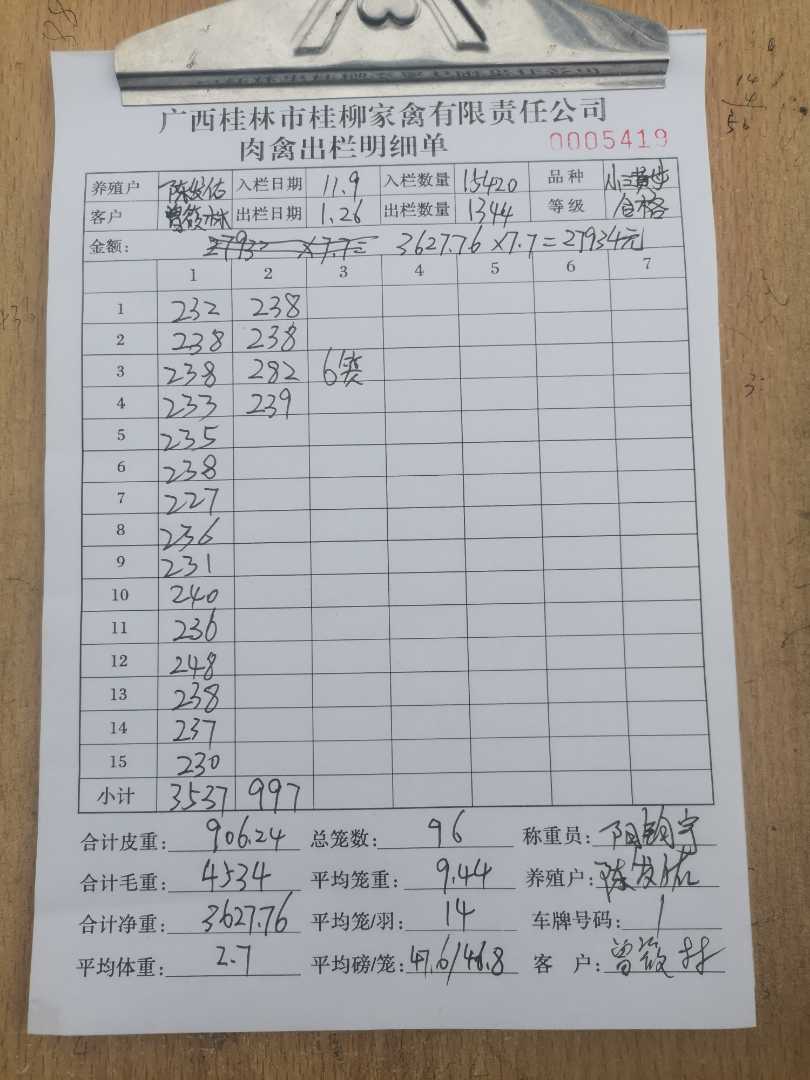 广西桂林市桂柳家禽有限责任公司
肉禽出栏明细单 0005419
养殖户 陈发佑 入栏日期 11.9 入栏数量 15420 品种
客户 曾筱林 出栏日期 1.26 出栏数量 1344 等级 合格
金额: 3627.76×7.7=27934元
1 2 3 4 5 6 7
1 232 238
2 238 238
3 238 282 6类
4 233 239
5 235
6 238
7 227
8 236
9 231
10 240
11 236
12 248
13 238
14 237
15 230
小计 3537 997
合计皮重: 906.24 总笼数: 96 称重员:
合计毛重: 4534 平均笼重: 9.44 养殖户: 陈发佑
合计净重: 3627.76 平均笼/羽: 14 车牌号码: 1
平均体重: 2.7 平均磅/笼: 47.6/46.8 客户: 曾筱林
14
4
56